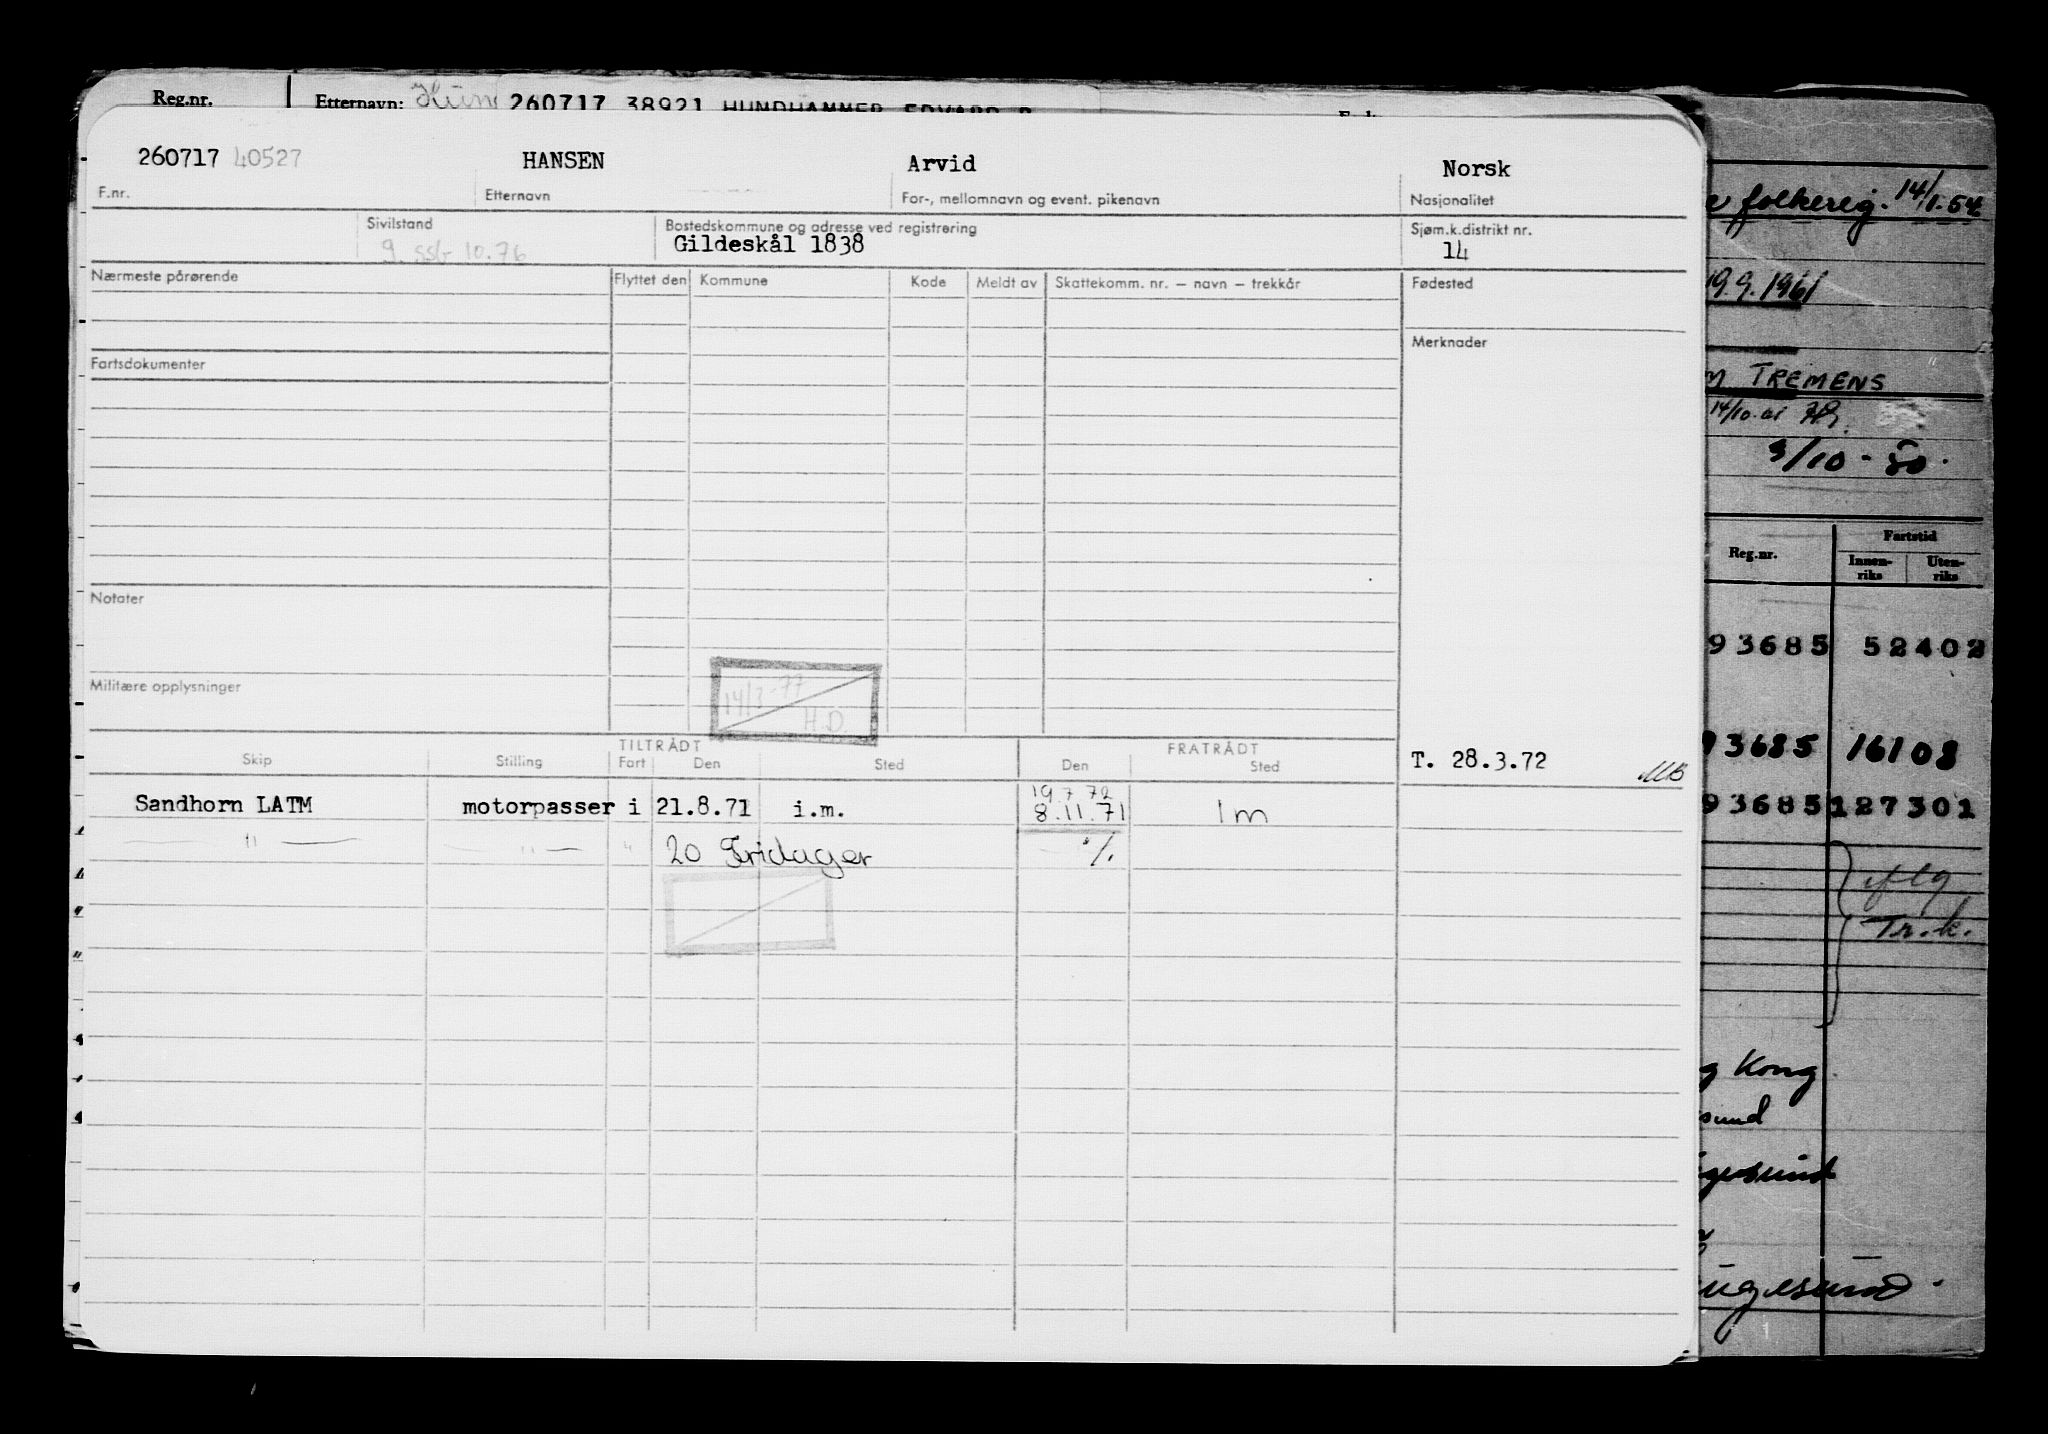 Reg.nr. Etternavn: 260717 38921 HUNDHAMMER EDVARD
260717 40527 HANSEN Arvid Norsk
F.nr. Etternavn For-, mellomnavn og event. pikenavn Nasjonalitet
Sivilstand Bostedskommune og adresse ved registrering Sjøm.k.distrikt nr.
g. ssb 10.76 Gildeskål 1838 14
Nærmeste pårørende Flyttet den Kommune Kode Meldt av Skattekomm. nr. – navn – trekkår Fødested
Merknader
Fartsdokumenter
Notater
Militære opplysninger
14/3-77
H.D
TILTRÅDT FRATRÅDT
Skip Stilling Fart Den Sted Den Sted
T. 28.3.72
19.7 72
Sandhorn LATM motorpasser i 21.8.71 i.m. 8.11.71 1m
" " " 20 Fridager %
folkereg. 14/1.54
19.9.1961
TREMENS
14/10
3/10 - 50.
Reg.nr. Fartstid
Innen-riks Uten-riks
93685 52402
93685 16108
93685 127301
Tr.k.
Kong
sund
gesund
ugesund.